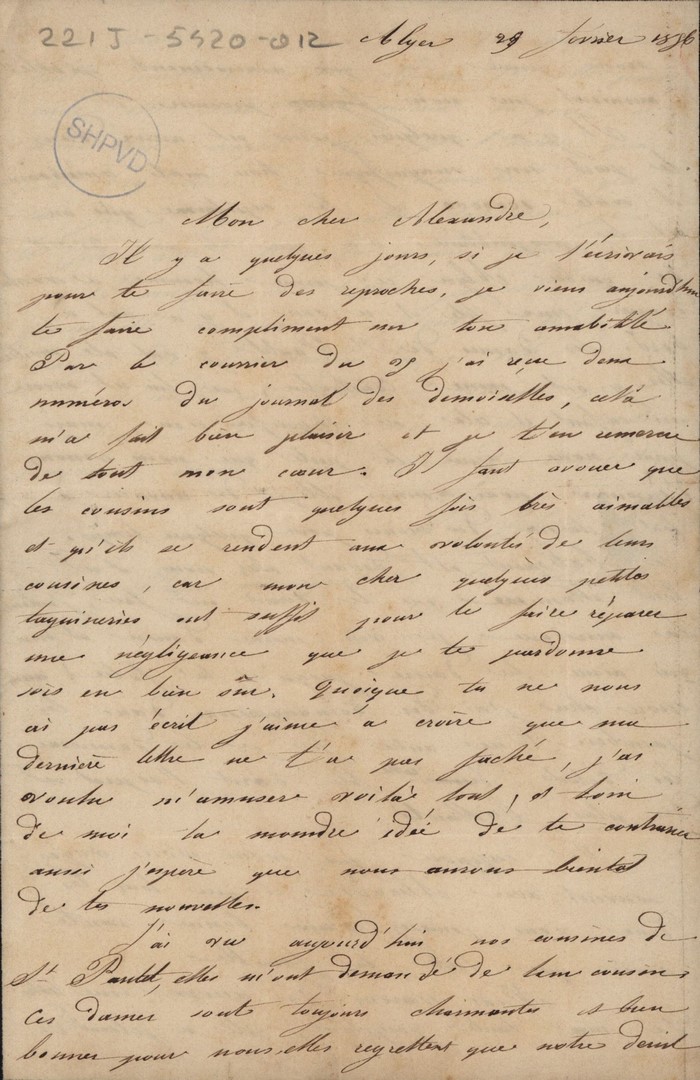 221J-5420-012 Alger 29 février 1856
SHPVD
Mon cher Alexandre,
Il y a quelques jours, si je t'écrivais
pour te faire des reproches, je viens aujourd'hui
te faire compliment sur ton amabilité.
Par le courrier du 25 j'ai reçu deux
numéros du journal des demoiselles, celà
m'a fait bien plaisir et je t'en remercie
de tout mon cœur. Il faut avouer que
les cousins sont quelques fois très aimables
et qu'ils se rendent aux volontés de leurs
cousines, car mon cher quelques petites
taquineries ont suffit pour te faire réparer
une négligeance que je te pardonne
sois en bien sûr. Quoique tu ne nous
ai pas écrit j'aime à croire que ma
dernière lettre ne t'a pas faché, j'ai
voulu m'amuser voilà tout, et loin
de moi la moindre idée de te contrarier
aussi j'espère que nous aurons bientot
de tes nouvelles.
J'ai vu aujourd'hui nos cousines de
St Paulet, elles m'ont demandé de leur cousin
ces dames sont toujours charmantes et bien
bonnes pour nous, elles regrettent que notre